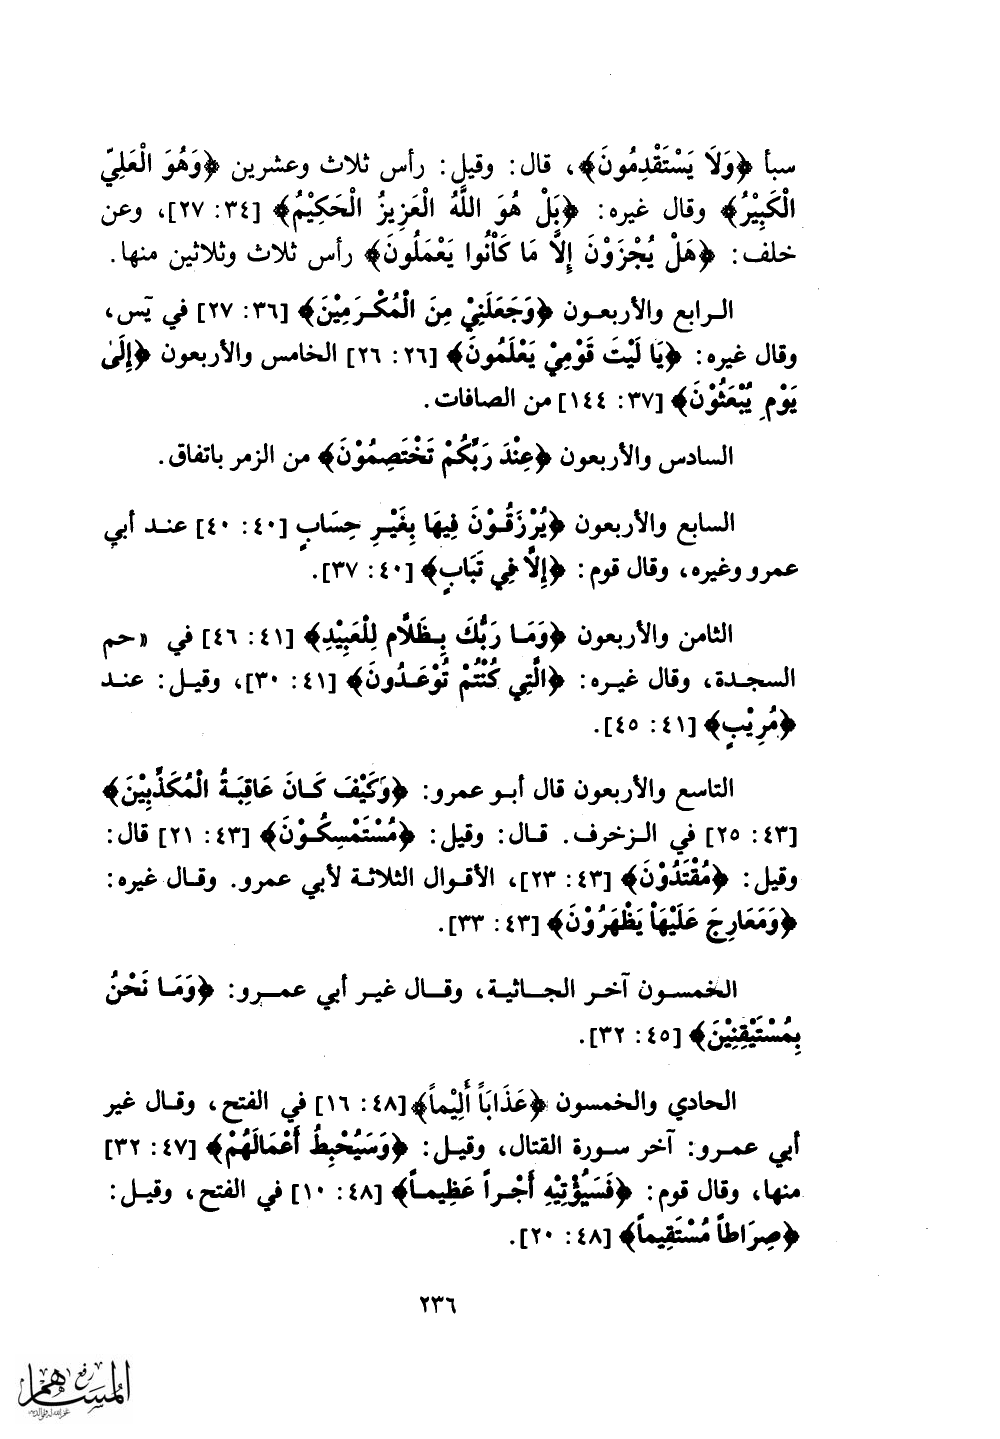 سبأ ﴿وَلَا يَسْتَقْدِمُونَ﴾، قال: وقيل: رأس ثلاث وعشرين ﴿وَهُوَ الْعَلِيّ
الْكَبِيْرُ﴾ وقال غيره: ﴿بَلْ هُوَ اللَّهُ الْعَزِيزُ الْحَكِيْمُ﴾ [٣٤: ٢٧]، وعن
خلف: ﴿هَلْ يُجْزَوْنَ إِلَّا مَا كَاْنُوا يَعْمَلُونَ﴾ رأس ثلاث وثلاثين منها.
الرابع والأربعون ﴿وَجَعَلَنِيْ مِنَ الْمُكْرَمِيْنَ﴾ [٣٦: ٢٧] في يَس،
وقال غيره: ﴿يَا لَيْتَ قَوْمِيْ يَعْلَمُونَ﴾ [٢٦: ٢٦] الخامس والأربعون ﴿إِلَىٰ
يَوْمِ يُبْعَثُوْنَ﴾ [٣٧: ١٤٤] من الصافات.
السادس والأربعون ﴿عِنْدَ رَبِّكُمْ تَخْتَصِمُوْنَ﴾ من الزمر باتفاق.
السابع والأربعون ﴿يُرْزَقُوْنَ فِيهَا بِغَيْرِ حِسَابٍ [٤٠: ٤٠] عند أبي
عمرو وغيره، وقال قوم: ﴿إِلَّا فِي تَبَابٍ﴾ [٤٠: ٣٧].
الثامن والأربعون ﴿وَمَا رَبُّكَ بِظَلَّام لِلْعَبِيْدِ﴾ [٤١: ٤٦] في «حم
السجدة، وقال غيره: ﴿الَّتِي كُنْتُمْ تُوْعَدُونَ﴾ [٤١: ٣٠]، وقيل: عند
﴿مُرِيْبٍ﴾ [٤١: ٤٥].
التاسع والأربعون قال أبو عمرو: ﴿وَكَيْفَ كَانَ عَاقِبَةُ الْمُكَذِّبِيْنَ﴾
[٤٣: ٢٥] في الزخرف. قال: وقيل: ﴿مُسْتَمْسِكُوْنَ﴾ [٤٣: ٢١] قال:
وقيل: ﴿مُقْتَدُوْنَ﴾ [٤٣: ٢٣]، الأقوال الثلاثة لأبي عمرو. وقال غيره:
﴿وَمَعَارِجَ عَلَيْهَاْ يَظْهَرُوْنَ﴾ [٤٣: ٣٣].
الخمسون آخر الجاثية، وقال غير أبي عمرو: ﴿وَمَا نَحْنُ
بِمُسْتَيْقِنِيْنَ﴾ [٤٥: ٣٢].
الحادي والخمسون ﴿عَذَابَاً أَلِيْماً﴾ [٤٨: ١٦] في الفتح، وقال غير
أبي عمرو: آخر سورة القتال، وقيل: ﴿وَسَيُحْبِطُ أَعْمَالَهُمْ﴾ [٤٧: ٣٢]
منها، وقال قوم: ﴿فَسَيُؤْتِيْهِ أَجْراً عَظِيماً﴾ [٤٨: ١٠] في الفتح، وقيل:
﴿صِرَاطاً مُسْتَقِيماً﴾ [٤٨: ٢٠].
٢٣٦